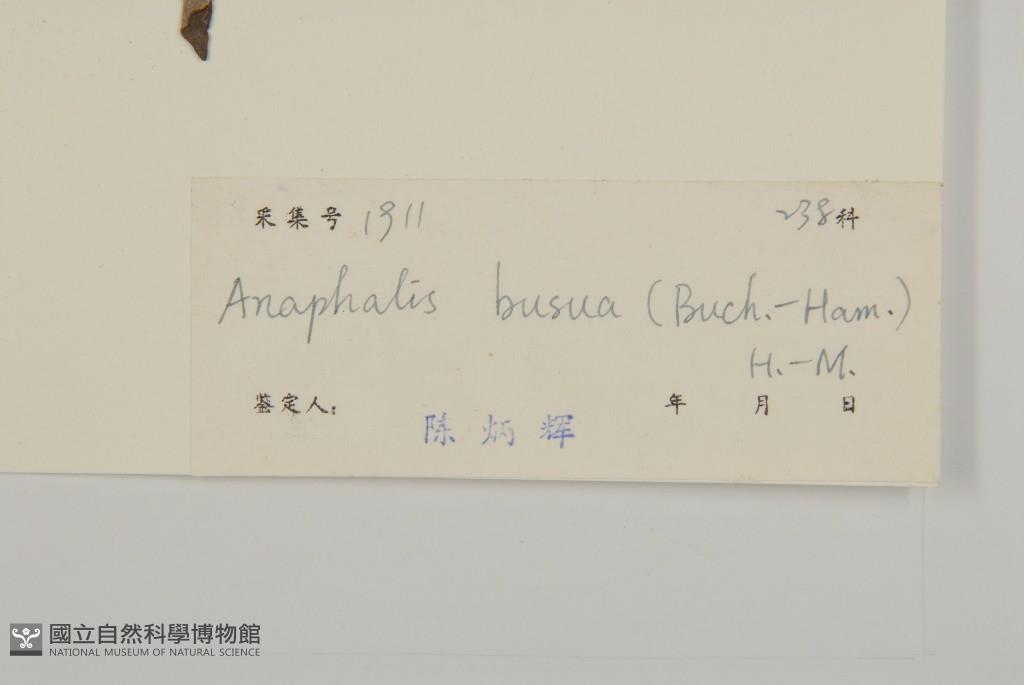 采集号 1911 238科
Anaphalis busua (Buch.-Ham.)
H.-M.
鉴定人: 年 月 日
陈炳辉
國立自然科學博物館
NATIONAL MUSEUM OF NATURAL SCIENCE